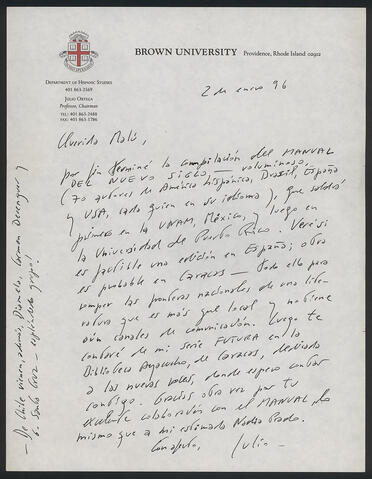 BROWN UNIVERSITY Providence, Rhode Island 02912
DEPARTMENT OF HISPANIC STUDIES
401 863-2569
JULIO ORTEGA
Professor, Chairman
TEL 401 863-2488
FAX 401 863-1786
2 de enero 96
Querida Malú,
por fin terminé la compilación del MANUAL
DEL NUEVO SIGLO, — voluminoso,
(70 autores de América hispánica, Brasil, España
y USA, cada quien en su idioma), que saldrá
primero en la UNAM, México, y luego en
la Universidad de Puerto Rico. Veré si
es factible una edición en España; otra
es probable en Caracas — todo ello para
romper las fronteras nacionales de una lite-
ratura que es más que local y no tiene
aún canales de comunicación. Luego te
contaré de mi serie FUTURA en la
Biblioteca Ayacucho, de Caracas, dedicada
a las nuevas voces, donde espero contar
contigo. Gracias otra vez por tu
excelente colaboración con el MANUAL, lo
mismo que a mi estimado Nadia Prado.
Con afecto, Julio
— De Chile vienen, además, Diamela, Carmen Berenguer y
G. Santa Cruz — espléndido grupo!